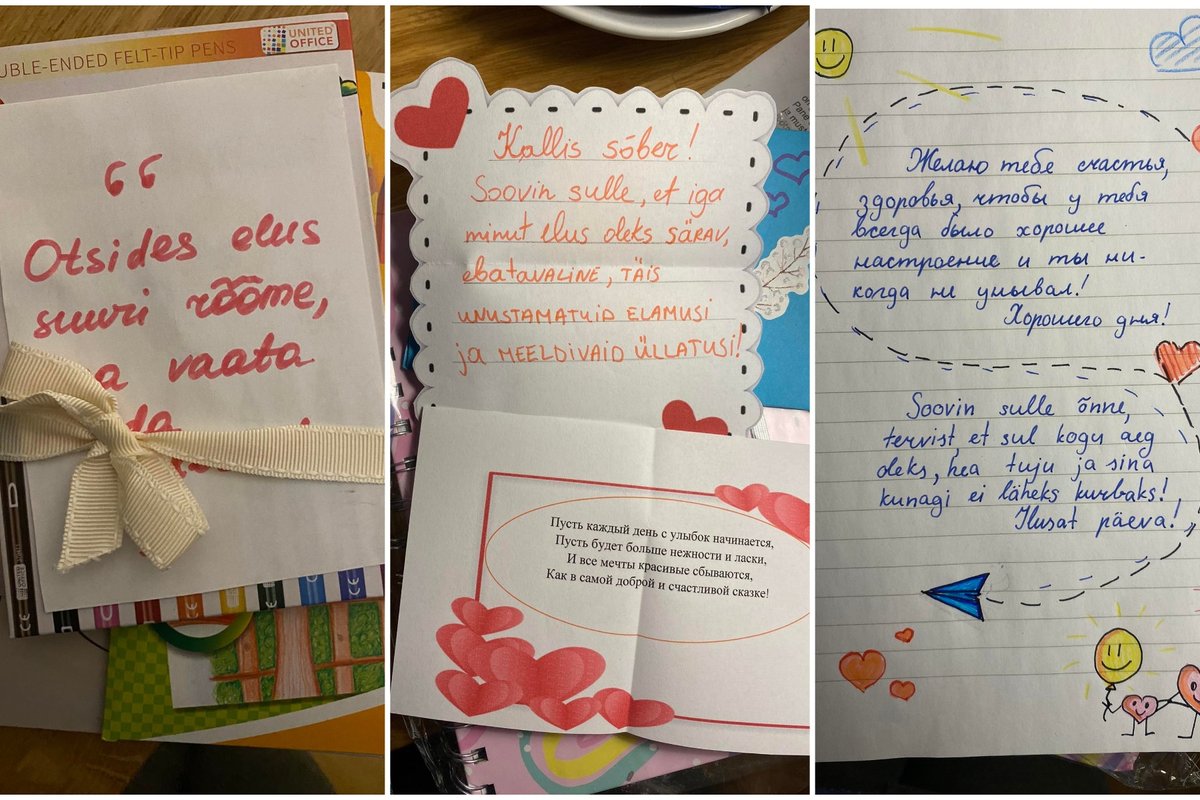 UBLE-ENDED FELT-TIP PENS
UNITED
OFFICE
“
Otsides elus
suuri rõõme,
vaata
Kallis sõber!
Soovin sulle, et iga
minut elus oleks SÄRAV,
EBATAVALINE, TÄIS
UNUSTAMATUID ELAMUSI
ja MEELDIVAID ÜLLATUSI!
Пусть каждый день с улыбок начинается,
Пусть будет больше нежности и ласки,
И все мечты красивые сбываются,
Как в самой доброй и счастливой сказке!
Желаю тебе счастья,
здоровья, чтобы у тебя
всегда было хорошее
настроение и ты ни-
когда не унывал!
Хорошего дня!
Soovin sulle õnne,
tervist, et sul kogu aeg
oleks, hea tuju ja sina
kunagi ei läheks kurbaks!
Ilusat päeva!